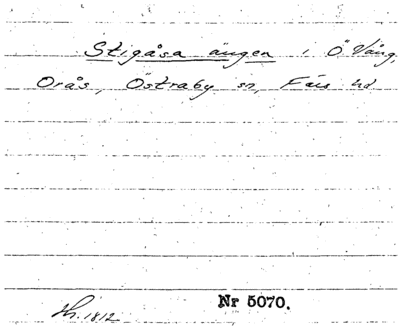 Stigåsa ängen i Ö Vång,
Orås, Östraby sn, Färs hd
Nr 5070.
Sk. 1812